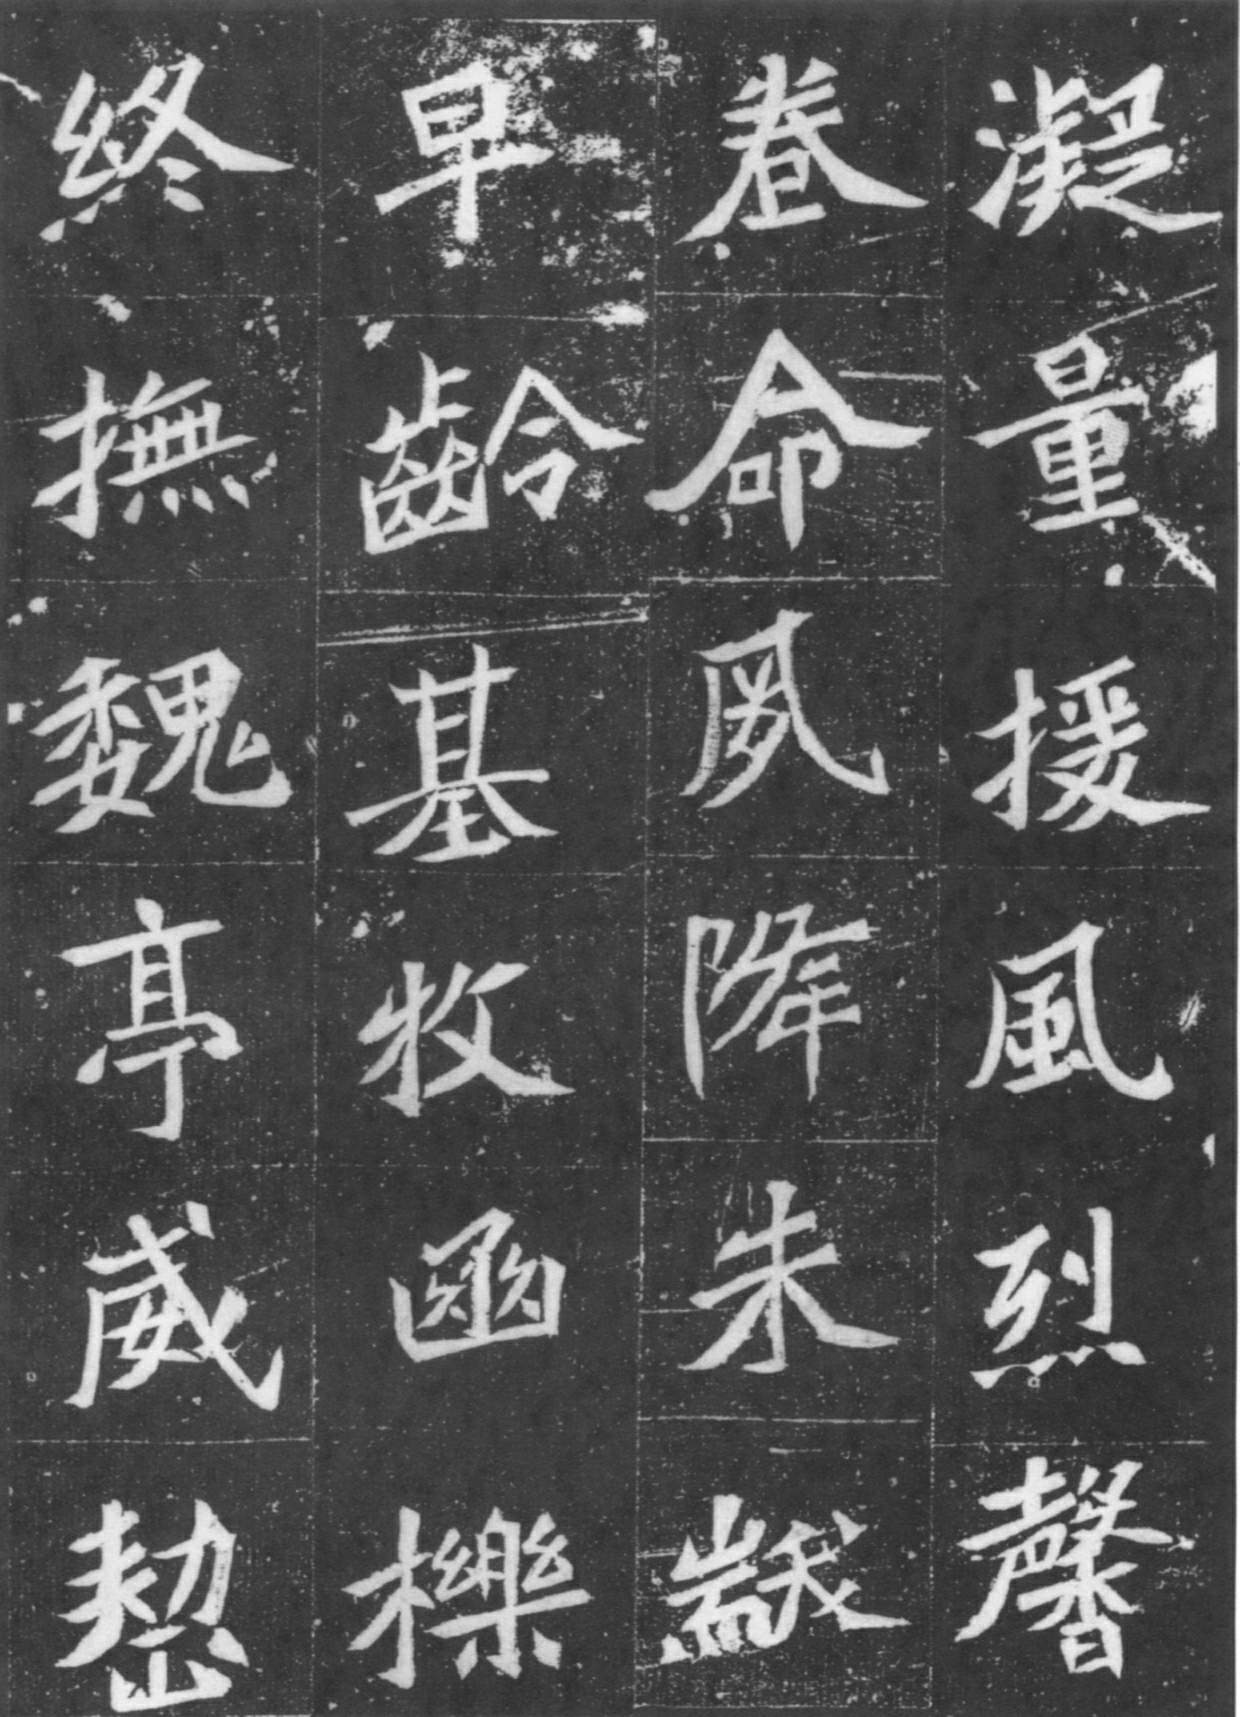 凝量援風烈馨
眷命夙降朱黻
早齡基牧函櫟
終撫魏亭威